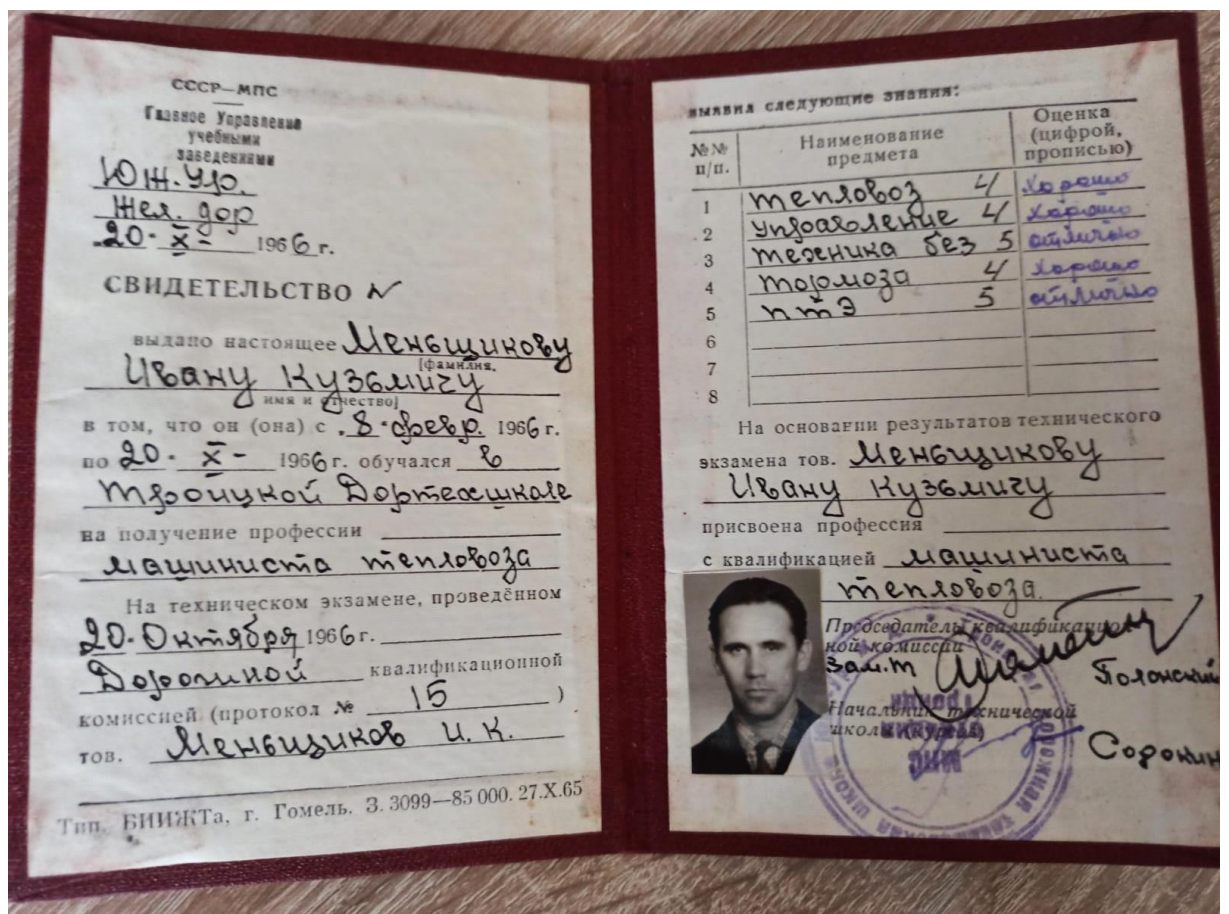 СССР—МПС
Главное Управление
учебными
заведениями
Юж. Ур.
Жел. дор
20 · X - 1966 г.
СВИДЕТЕЛЬСТВО N
выдано настоящее Меньщикову
[фамилия,
Ивану Кузьмичу
имя и отчество]
в том, что он (она) с 8 · февр. 1966 г.
по 20 · X - 1966 г. обучался в
Троицкой Дортехшколе
на получение профессии
машиниста тепловоза
На техническом экзамене, проведённом
20 · Октября 1966 г.
Дорожной квалификационной
комиссией (протокол № 15 )
тов. Меньщиков И. К.
Тип. БИИЖТа, г. Гомель. З. 3099—85 000. 27.X.65
выявил следующие знания:
№№ п/п. Наименование предмета Оценка (цифрой, прописью)
1 тепловоз 4 хорошо
2 управление 4 хорошо
3 техника без 5 отлично
4 тормоза 4 хорошо
5 птэ 5 отлично
6
7
8
На основании результатов технического
экзамена тов. Меньщикову
Ивану Кузьмичу
присвоена профессия
с квалификацией машиниста
тепловоза.
Председатель квалификацион-
ной комиссии
Зам. Т Полонский
Начальник технической
школы (курсов)
Сорокин